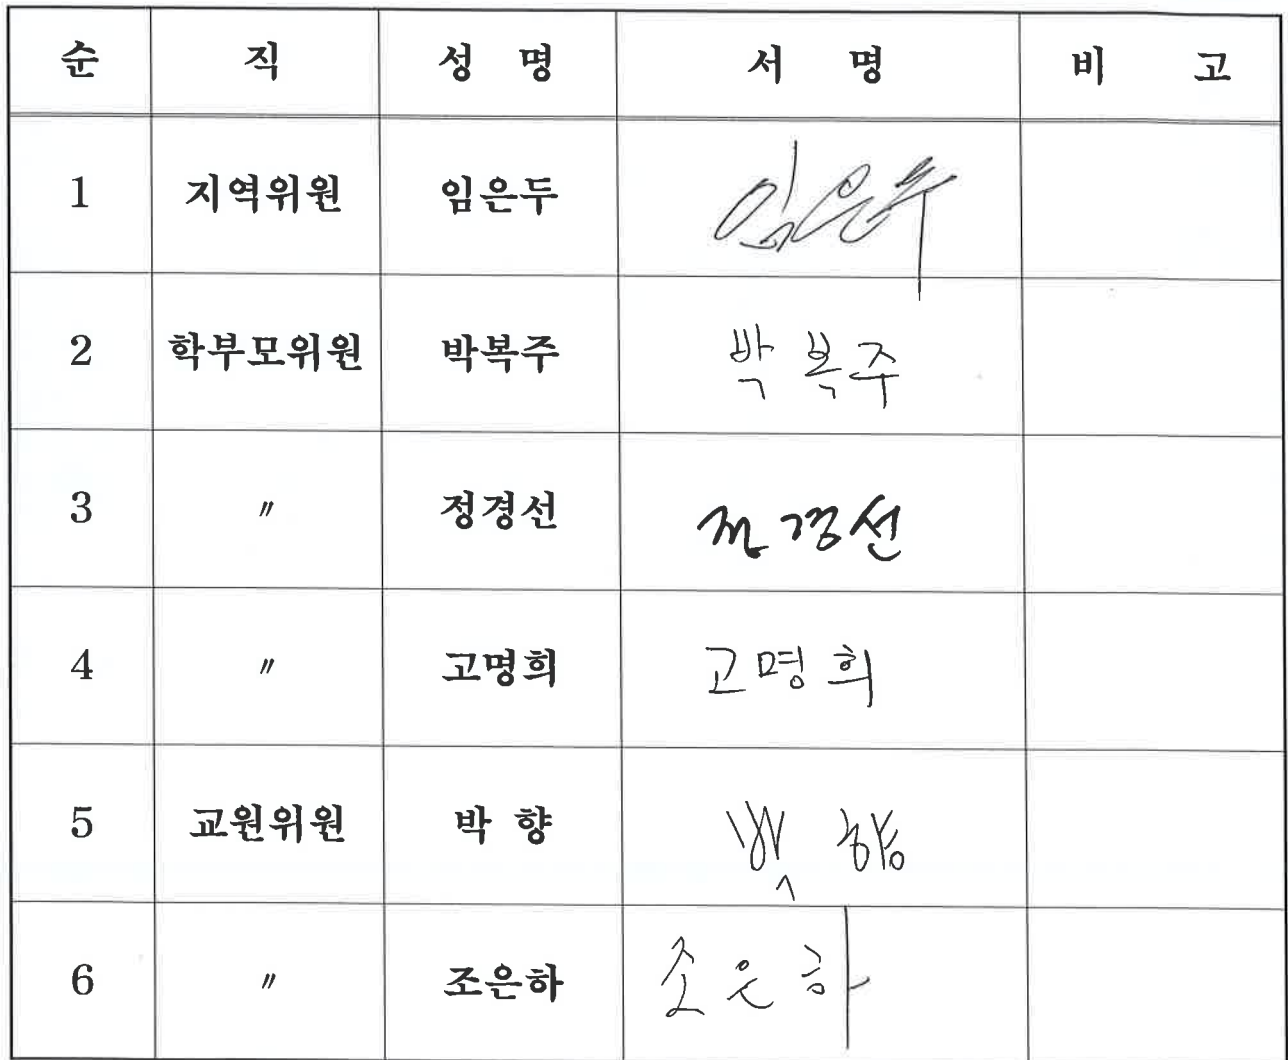 순 직 성 명 서 명 비 고
1 지역위원 임은두 임은두
2 학부모위원 박복주 박복주
3 〃 정경선 정경선
4 〃 고명희 고명희
5 교원위원 박 향 박 향
6 〃 조은하 조은하